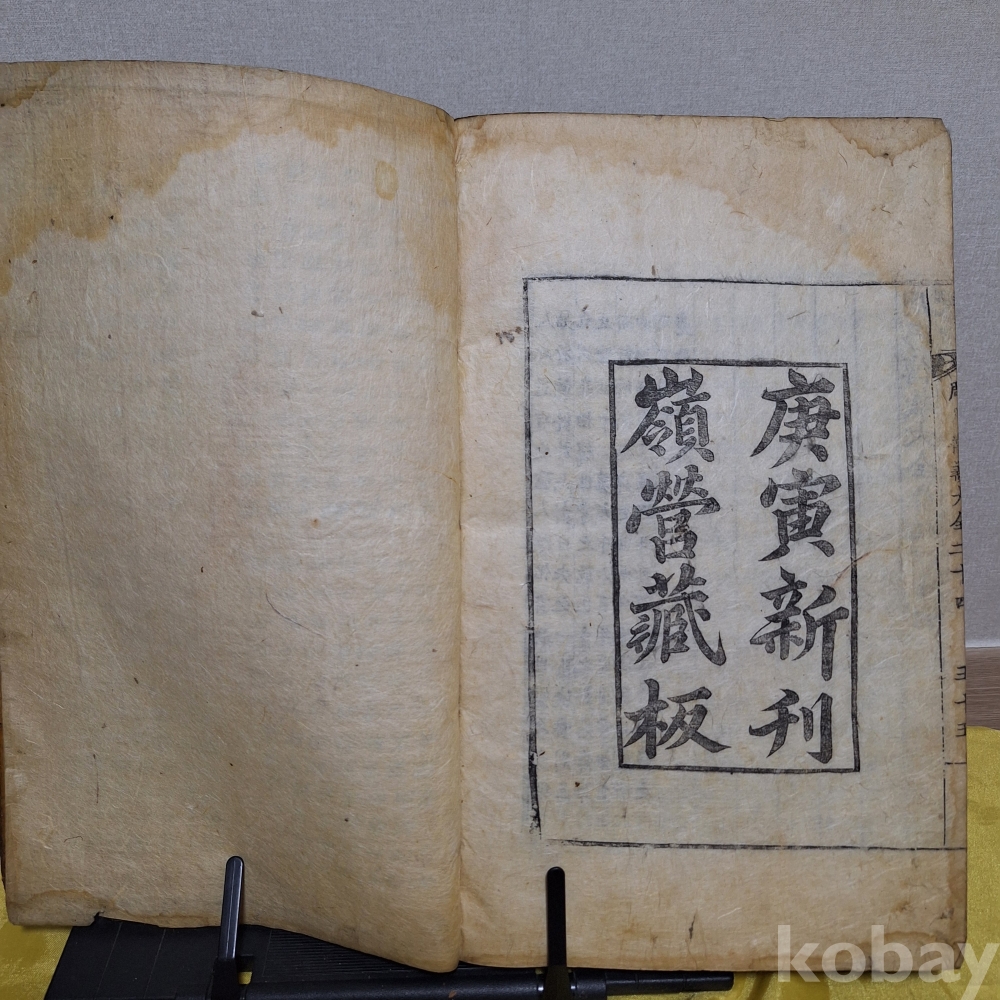 庚寅新刊
嶺營藏板
kobay